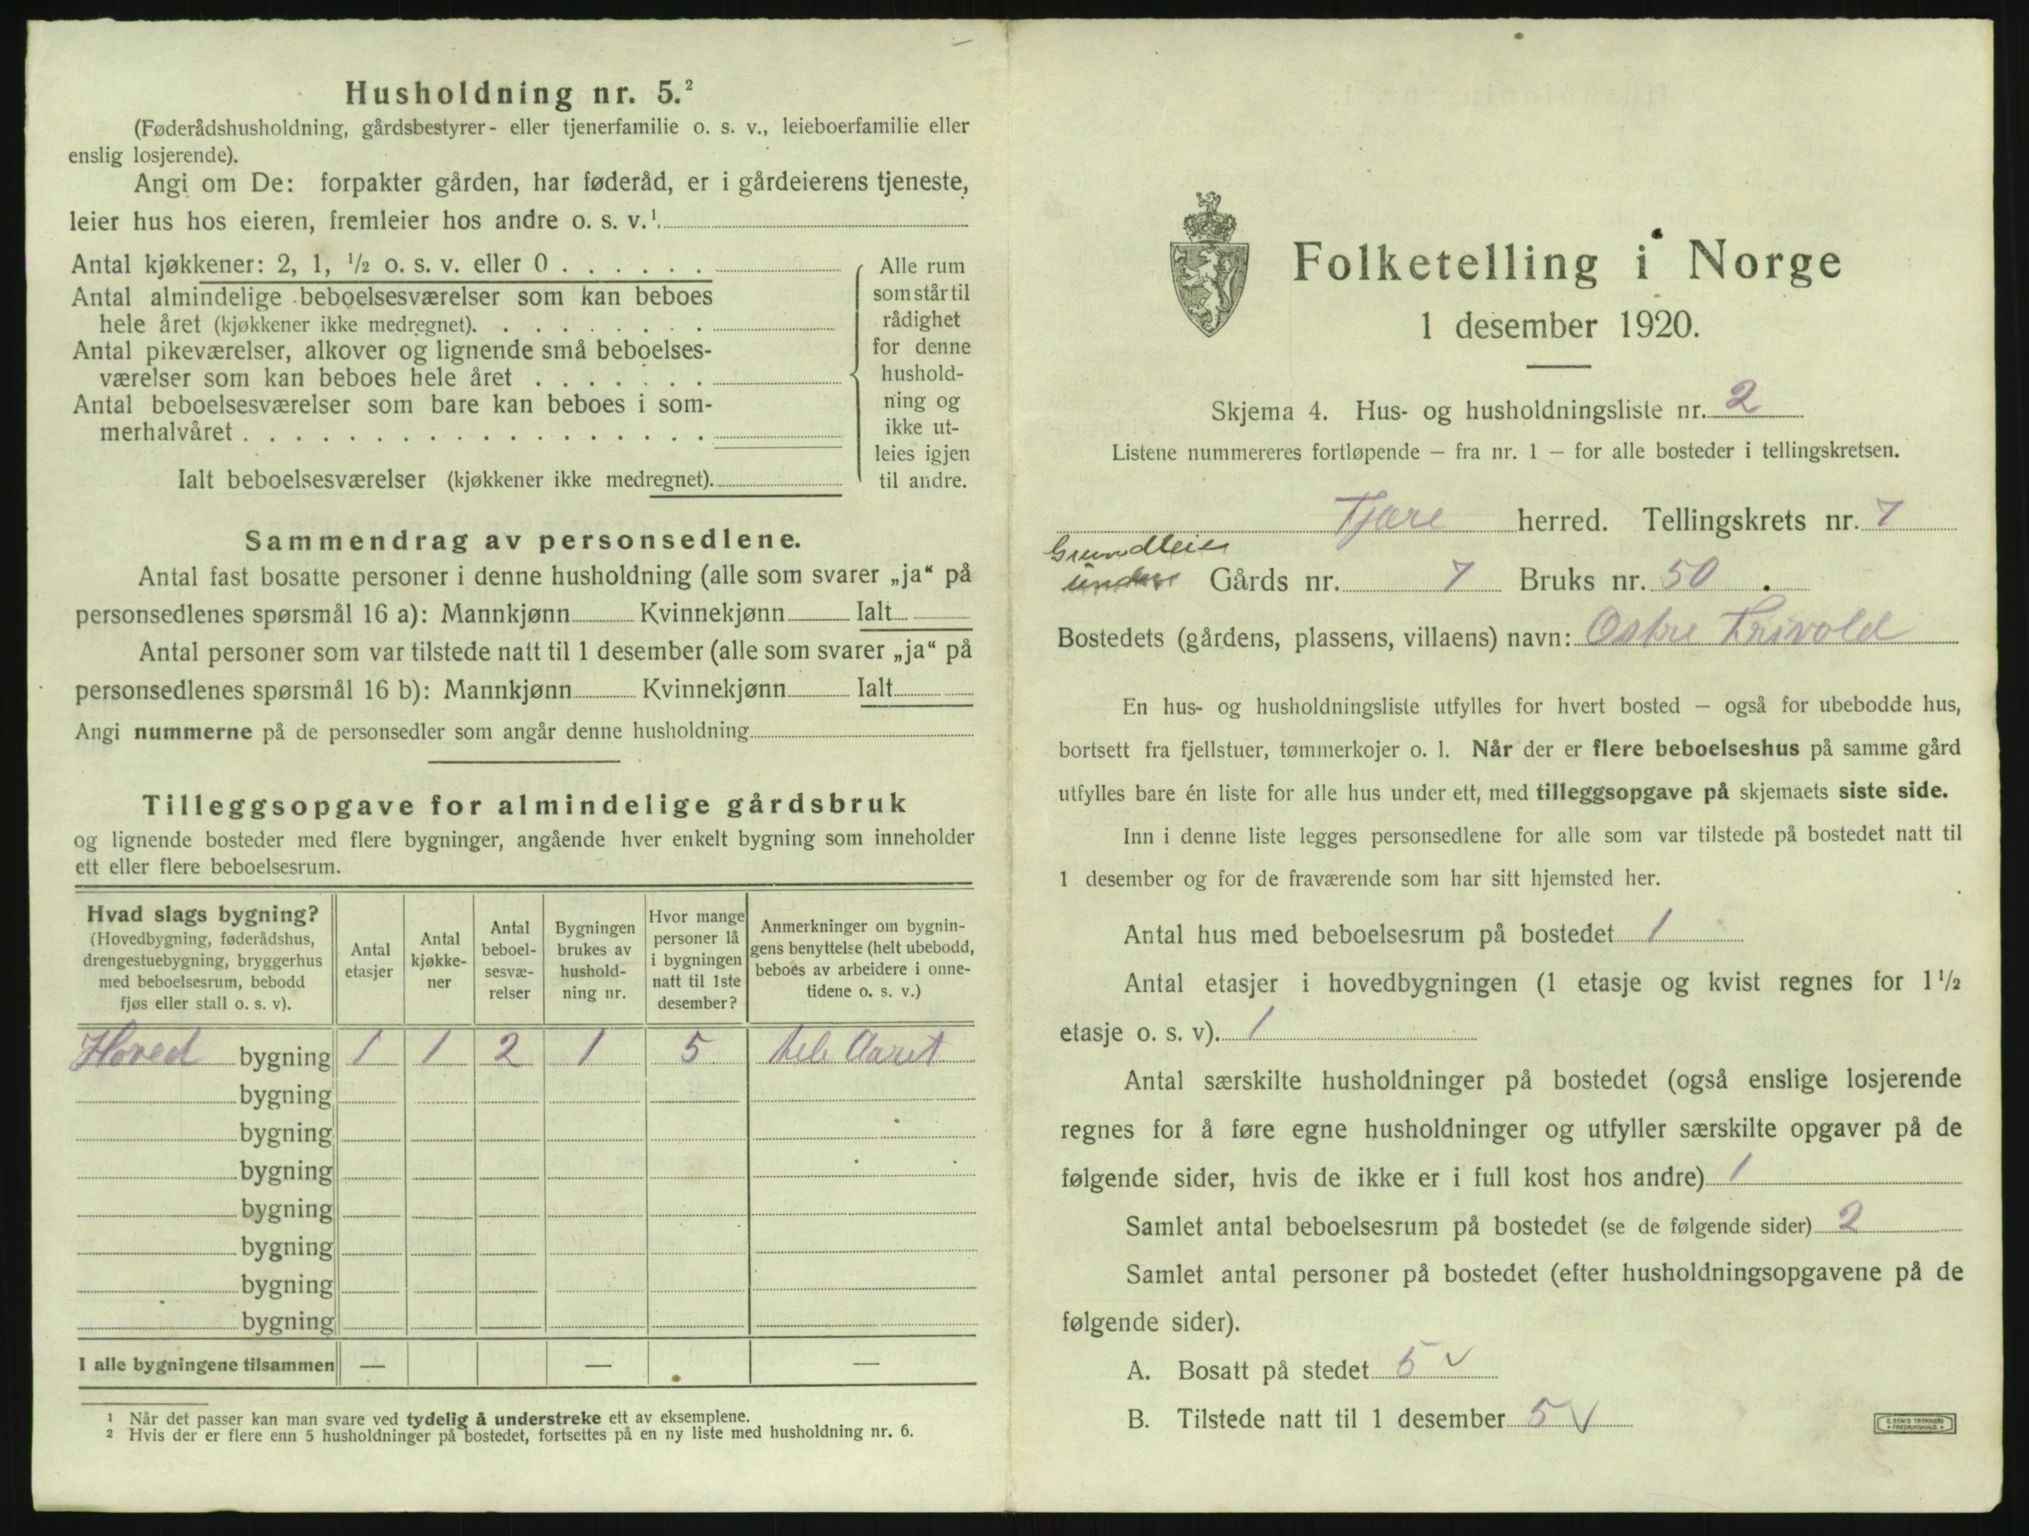 Husholdning nr. 5.²
(Føderådshusholdning, gårdsbestyrer- eller tjenerfamilie o. s. v., leieboerfamilie eller
enslig losjerende).
Angi om De: forpakter gården, har føderåd, er i gårdeierens tjeneste,
leier hus hos eieren, fremleier hos andre o. s. v.¹
Antal kjøkkener: 2, 1, ½ o. s. v. eller 0 . . . . . .
Antal almindelige beboelsesværelser som kan beboes
hele året (kjøkkener ikke medregnet). . . . . . . . .
Antal pikeværelser, alkover og lignende små beboelses-
værelser som kan beboes hele året . . . . . . .
Antal beboelsesværelser som bare kan beboes i som-
merhalvåret . . . . . . . . . . . . . . . . . .
Ialt beboelsesværelser (kjøkkener ikke medregnet).
Alle rum
som står til
rådighet
for denne
hushold-
ning og
ikke ut-
leies igjen
til andre.
Sammendrag av personsedlene.
Antal fast bosatte personer i denne husholdning (alle som svarer „ja“ på
personsedlenes spørsmål 16 a): Mannkjønn Kvinnekjønn Ialt
Antal personer som var tilstede natt til 1 desember (alle som svarer „ja“ på
personsedlenes spørsmål 16 b): Mannkjønn Kvinnekjønn Ialt
Angi nummerne på de personsedler som angår denne husholdning
Tilleggsopgave for almindelige gårdsbruk
og lignende bosteder med flere bygninger, angående hver enkelt bygning som inneholder
ett eller flere beboelsesrum.
Hvad slags bygning?
(Hovedbygning, føderådshus,
drengestuebygning, bryggerhus
med beboelsesrum, bebodd
fjøs eller stall o. s. v).
Antal
etasjer
Antal
kjøkke-
ner
Antal
beboel-
sesvæ-
relser
Bygningen
brukes av
hushold-
ning nr.
Hvor mange
personer lå
i bygningen
natt til 1ste
desember?
Anmerkninger om bygnin-
gens benyttelse (helt ubebodd,
beboes av arbeidere i onne-
tidene o. s. v.)
Hoved bygning 1 1 2 1 5 hele Aaret
bygning
bygning
bygning
bygning
bygning
bygning
bygning
I alle bygningene tilsammen — — —
¹ Når det passer kan man svare ved tydelig å understreke ett av eksemplene.
² Hvis der er flere enn 5 husholdninger på bostedet, fortsettes på en ny liste med husholdning nr. 6.
Folketelling i Norge
1 desember 1920.
Skjema 4. Hus- og husholdningsliste nr. 2
Listene nummereres fortløpende – fra nr. 1 – for alle bosteder i tellingskretsen.
Fjære herred. Tellingskrets nr. 7
Grundleie
under Gårds nr. 7 Bruks nr. 50
Bostedets (gårdens, plassens, villaens) navn: Østre
En hus- og husholdningsliste utfylles for hvert bosted – også for ubebodde hus,
bortsett fra fjellstuer, tømmerkojer o. l. Når der er flere beboelseshus på samme gård
utfylles bare én liste for alle hus under ett, med tilleggsopgave på skjemaets siste side.
Inn i denne liste legges personsedlene for alle som var tilstede på bostedet natt til
1 desember og for de fraværende som har sitt hjemsted her.
Antal hus med beboelsesrum på bostedet 1
Antal etasjer i hovedbygningen (1 etasje og kvist regnes for 1½
etasje o. s. v). 1
Antal særskilte husholdninger på bostedet (også enslige losjerende
regnes for å føre egne husholdninger og utfyller særskilte opgaver på de
følgende sider, hvis de ikke er i full kost hos andre) 1
Samlet antal beboelsesrum på bostedet (se de følgende sider) 2
Samlet antal personer på bostedet (efter husholdningsopgavene på de
følgende sider).
A. Bosatt på stedet 5 √
B. Tilstede natt til 1 desember 5 √